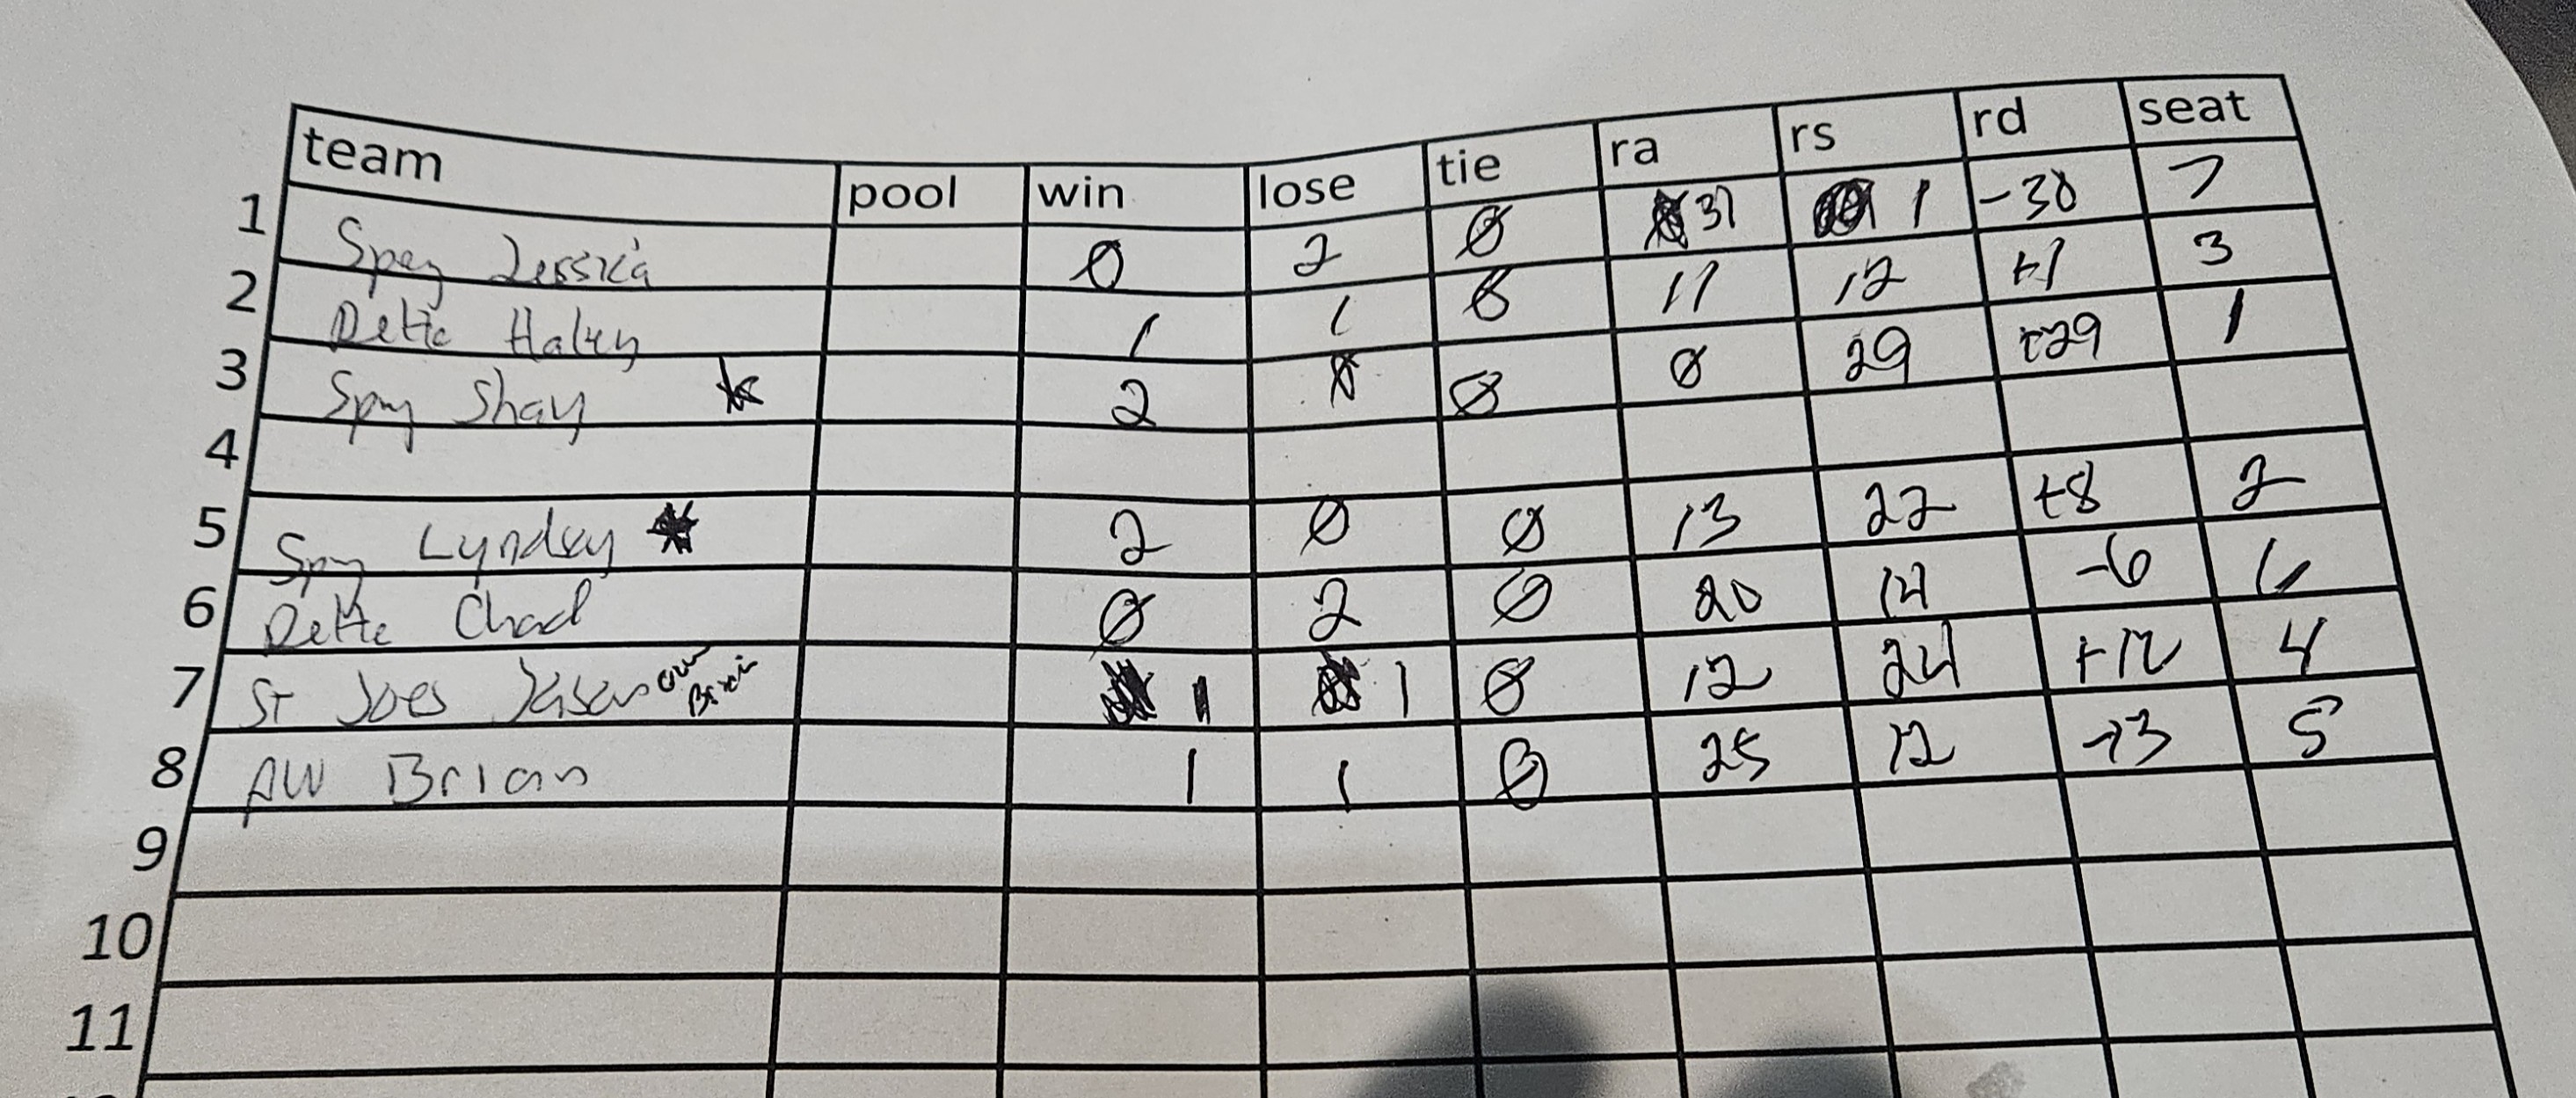 team pool win lose tie ra rs rd seat
1 Spey Jessica 0 2 0 31 1 -30 7
2 Delta Haley 1 1 0 11 12 +1 3
3 Spey Shay 2 0 0 0 29 +29 1
4
5 Spey Lyndsey 2 0 0 13 22 +8 2
6 Delta Chad 0 2 0 20 14 -6 6
7 St Joes Jason 1 1 0 12 24 +12 4
8 AW Brian 1 1 0 25 12 -13 5
9
10
11